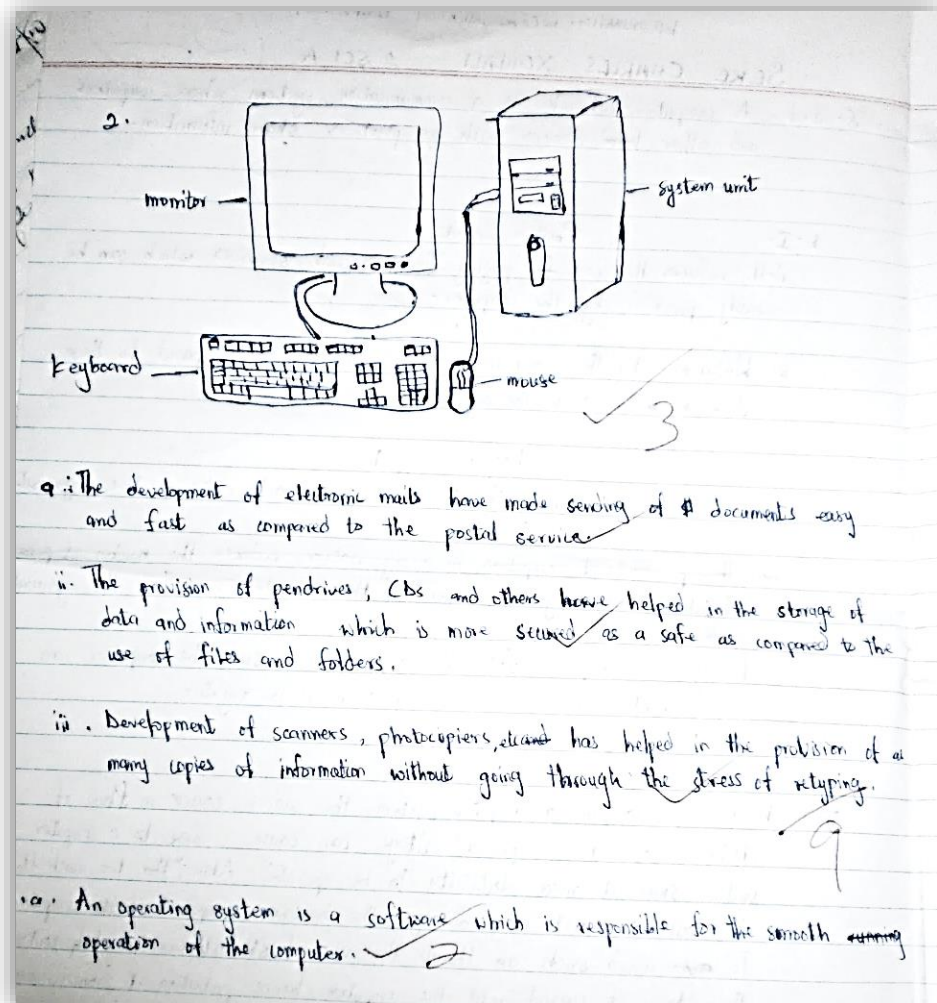 2.
monitor
system unit
keyboard
mouse
3
a. i. The development of electronic mails have made sending of documents easy
and fast as compared to the postal service
ii. The provision of pendrives, CDs and others have helped in the storage of
data and information which is more secured as a safe as compared to the
use of files and folders.
iii. Development of scanners, photocopiers, etc has helped in the provision of
many copies of information without going through the stress of retyping.
9
a. An operating system is a software which is responsible for the smooth running
operation of the computer.
2